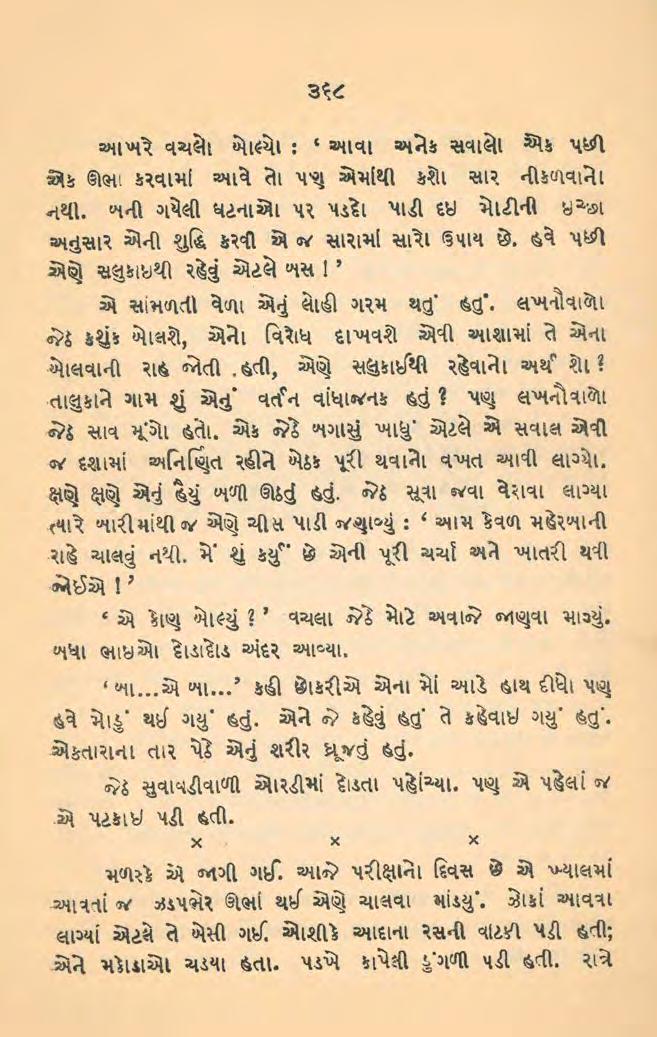 ૩૬૮
આખરે વચલો બોલ્યો : ‘ આવા અનેક સવાલો એક પછી
એક ઊભા કરવામાં આવે તો પણ એમાંથી કશો સાર નીકળવાનો
નથી. બની ગયેલી ઘટનાઓ પર પડદો પાડી દઇ મોટીની ઇચ્છા
અનુસાર એની શુદ્ધિ કરવી એ જ સારામાં સારો ઉપાય છે. હવે પછી
એણે સલુકાઇથી રહેવું એટલે બસ ! ’
એ સાંભળતી વેળા એનું લોહી ગરમ થતું હતું. લખનૌવાળો
જેઠ કશુંક બોલશે, એનો વિરોધ દાખવશે એવી આશામાં તે એના
બોલવાની રાહ જોતી હતી, એણે સલુકાઈથી રહેવાનો અર્થ શો ?
તાલુકાને ગામ શું એનું વર્તન વાંધાજનક હતું ? પણ લખનૌવાળો
જેઠ સાવ મૂંગો હતો. એક જેઠે બગાસું ખાધું એટલે એ સવાલ એવી
જ દશામાં અનિર્ણિત રહીને બેઠક પૂરી થવાનો વખત આવી લાગ્યો.
ક્ષણે ક્ષણે એનું હૈયું બળી ઊઠતું હતું. જેઠ સૂવા જવા વેરાવા લાગ્યા
ત્યારે બારીમાંથી જ એણે ચીસ પાડી જણાવ્યું : ‘ આમ કેવળ મહેરબાની
રાહે ચાલવું નથી. મેં શું કર્યું છે એની પૂરી ચર્ચા અને ખાતરી થવી
જોઈએ ! ’
‘ એ કોણ બોલ્યું ? ’ વચલા જેઠે મોટે અવાજે જાણવા માગ્યું.
બધા ભાઇઓ દોડાદોડ અંદર આવ્યા.
‘ બા...એ બા...’ કહી છોકરીએ એના મોં આડે હાથ દીધો પણ
હવે મોડું થઈ ગયું હતું. એને જે કહેવું હતું તે કહેવાઇ ગયું હતું.
એકતારાના તાર પેઠે એનું શરીર ધ્રૂજતું હતું.
જેઠ સુવાવડીવાળી ઓરડીમાં દોડતા પહોંચ્યા. પણ એ પહેલાં જ
એ પટકાઇ પડી હતી.
× × ×
મળરકે એ જાગી ગઈ. આજે પરીક્ષાનો દિવસ છે એ ખ્યાલમાં
આવતાં જ ઝડપભેર ઊભાં થઈ એણે ચાલવા માંડયું. ઝોકાં આવવા
લાગ્યાં એટલે તે બેસી ગઈ. ઓશીકે આદાના રસની વાટકી પડી હતી;
એને મકોડાઓ ચડયા હતા. પડખે કાપેલી ડુંગળી પડી હતી. રાત્રે